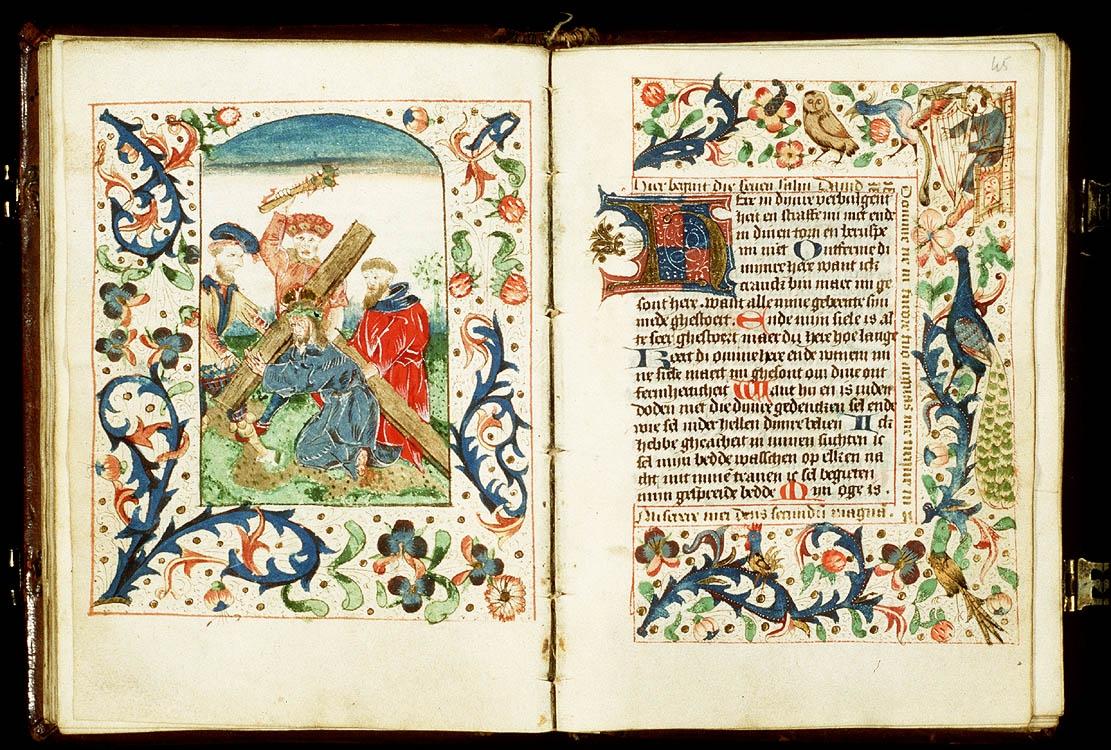 45
Hier begint die seven salm David
Ere in dinre verbolgent
heit en straffe mi niet ende
in dinen torn en berispe
mi niet Ontferme di
mijnre here want ick
cranck bin maer mi ge
sont here want alle mine gebeente sijn
mede ghestoert. Ende mijn siele is al
te seer ghestoert maer du here hoe lange
Keert di omme here ende verloes mi
ne siele maect mi ghesont om dine ont
fermherticheit Want hi en is inden
doden niet die dijnre gedencken sel ende
wie sel inder hellen dinre belien Ick
hebbe ghearbeit in minen suchten ic
sel mijn bedde wasschen op elken na
cht mit minen tranen ic sel begieten
mijn gespreide bedde Mijn oge is.
Miserere mei deus secundum magna.
Domine ne in furore tuo arguas me neque in